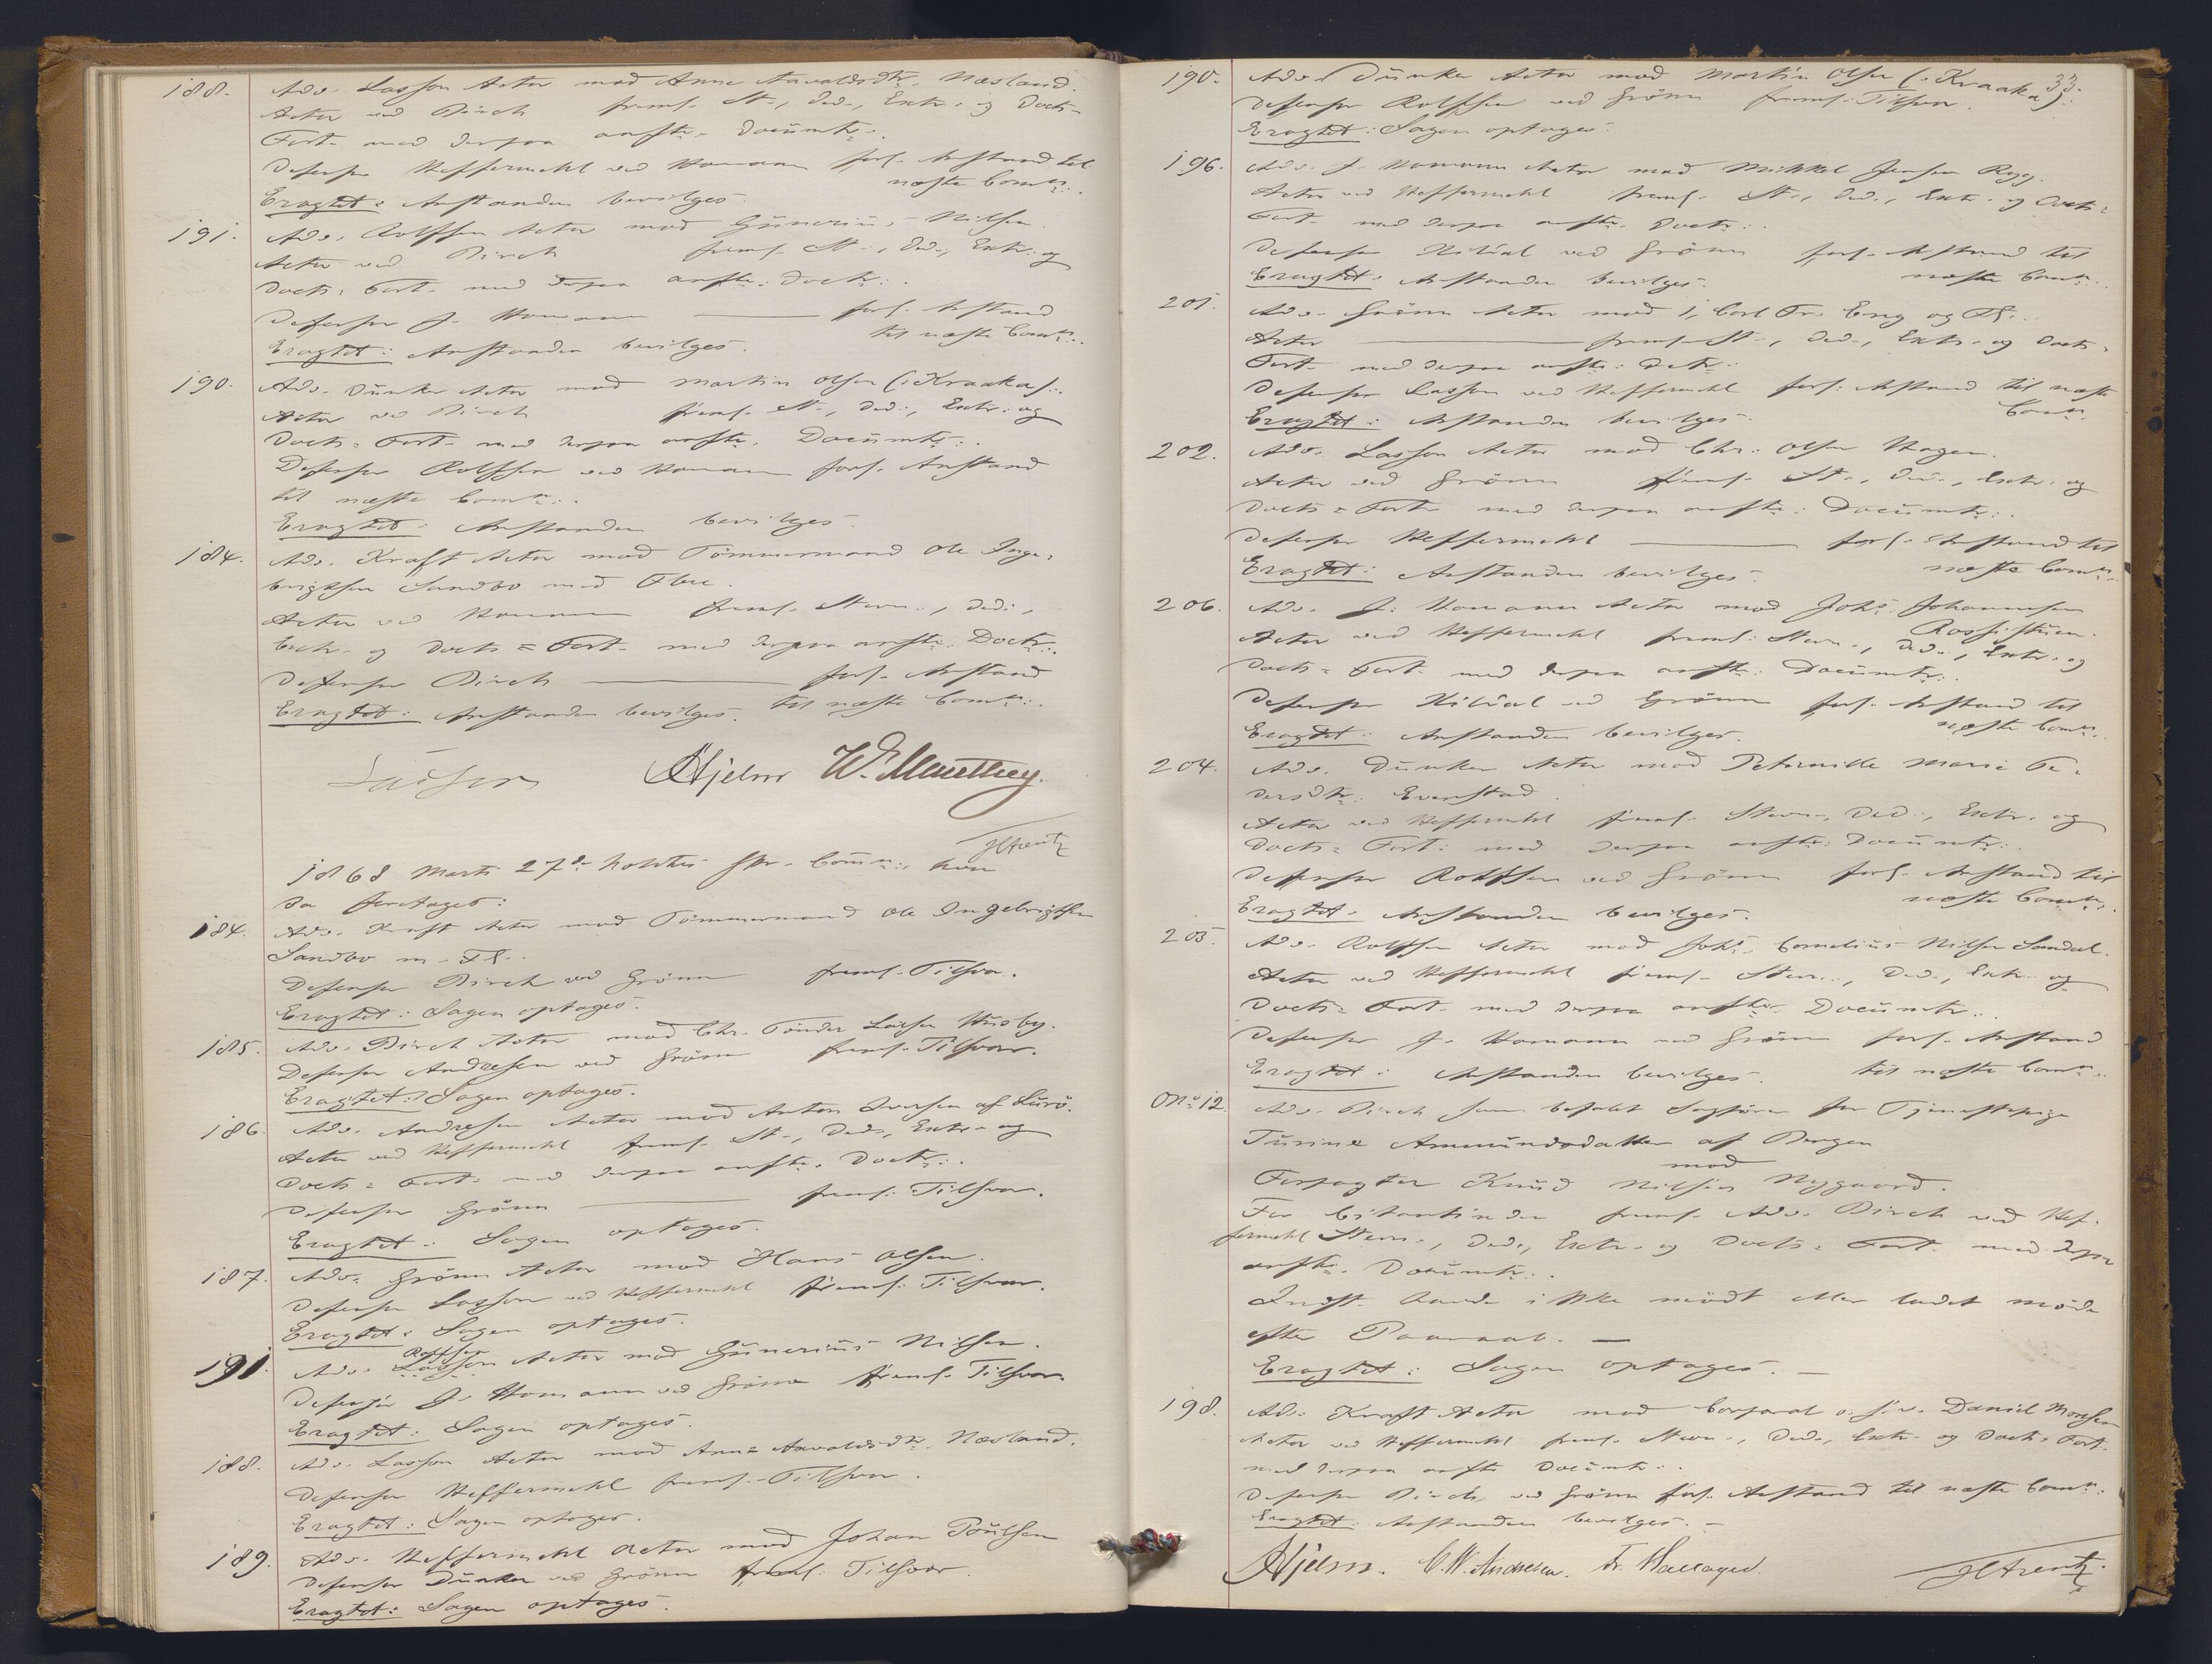 188. Adv. Lasson Actor mod Anne Arvaldsdtr. Næsland.
Actor ved Birch freml. St., Ded., Extr. og Docts-
Fort. med derpaa anførte Documtr.
Defensor Heffermehl ved Homann forl. Anstand til
næste Comn.
Eragtet: Anstanden bevilges.
191. Adv. Rolffsen Actor mod Günerius Nilsen.
Actor ved Birch freml. St., Ded., Extr. og
Docts. Fort. med derpaa anførte Doctr.
Defensor J. Homann forl. Anstand
til næste Comn.
Eragtet: Anstanden bevilges.
190. Adv. Dunker Actor mod Martin Olsen (: Kraaka :).
Actor ved Birch freml. St., Ded., Extr. og
Docts = Fort. med derpaa anførte Documtr.
Defensor Rolffsen ved Homann forl. Anstand
til næste Comn.
Eragtet: Anstanden bevilges.
184. Adv. Kraft Actor mod Tömmermand Ole Inge-
brigtsen Sandbo med Flere.
Actor ved Homann freml. Stevn., Ded.,
Extr. og Docts = Fort. med derpaa anførte Doctr.
Defensor Birch forl. Anstand
til næste Comn.
Eragtet: Anstanden bevilges.
Hjelm W. Manthey.
JCArentz
1868 Marts 27de holdtes Comn., hvor
da foretages:
184. Adv. Kraft Actor mod Tömmermand Ole Ingebrigtsen
Sandbo m. Fl.
Defensor Birch ved Grönn freml. Tilsvar.
Eragtet: Sagen optages.
185. Adv. Birch Actor mod Chr. Tönder Larsen Husby.
Defensor Andresen ved Grönn freml. Tilsvar.
Eragtet: Sagen optages.
186. Adv. Andresen Actor mod Anton Iversen af Lurö.
Actor ved Heffermehl freml. St., Ded., Extr. og
Docts = Fort. med derpaa anførte Doctr.
Defensor Grönn freml. Tilsvar.
Eragtet: Sagen optages.
187. Adv. Grönn Actor mod Hans Olsen.
Defensor Lasson ved Heffermehl freml. Tilsvar.
Eragtet: Sagen optages.
Rolffsen
191. Adv. Lasson Actor mod Günerius Nilsen.
Defensor J. Homann ved Grönn freml. Tilsvar.
Eragtet: Sagen optages.
188. Adv. Lasson Actor mod Anne Arvaldsdtr. Næsland.
Defensor Heffermehl freml. Tilsvar.
Eragtet: Sagen optages.
189. Adv. Heffermehl Actor mod Johan Poulsen
Defensor Dunker ved Grönn freml. Tilsvar.
Eragtet: Sagen optages.
33.
190. Adv. Dunker Actor mod Martin Olsen (: Kraaka :).
Defensor Rolffsen ved Grönn freml. Tilsvar.
Eragtet: Sagen optages.
196. Adv. J. Homann Actor mod Mikkel Jensen Rygg.
Actor ved Heffermehl freml. St., Ded., Extr. og Docts =
Fort. med derpaa anførte Doctr.
Defensor Kildal ved Grönn forl. Anstand til
næste Comn.
Eragtet: Anstanden bevilges.
201. Adv. Grönn Actor mod 1, Carl Fr. Eng og Fl.
Actor freml. St., Ded., Extr. og Docts.
Fort. med derpaa anførte Dctr.
Defensor Lasson ved Heffermehl forl. Anstand til næste
Comn.
Eragtet: Anstanden bevilges.
202. Adv. Lasson Actor mod Chr. Olsen Hagen.
Actor ved Grönn freml. St., Ded., Extr. og
Docts = Fort. med derpaa anførte Documtr.
Defensor Heffermehl forl. Anstand til
næste Comn.
Eragtet: Anstanden bevilges.
206. Adv. J. Homann Actor mod Johs. Johannesen
Rossistuen.
Actor ved Heffermehl freml. Stevn., Ded., Extr. og
Docts = Fort. med derpaa anførte Documtr.
Defensor Kildal ved Grönn forl. Anstand til
næste Comn.
Eragtet: Anstanden bevilges.
204. Adv. Dunker Actor mod Petronille Marie Pe-
dersdtr. Evenstad.
Actor ved Heffermehl freml. Stevn., Ded., Extr. og
Docts = Fort. med derpaa anførte Documtr.
Defensor Rolffsen ved Grönn forl. Anstand til
næste Comn.
Eragtet: Anstanden bevilges.
205. Adv. Rolffsen Actor mod Johs. Cornelius Nilsen Sandal.
Actor ved Heffermehl freml. Stevn., Ded., Extr. og
Docts = Fort. med derpaa anførte Documtr.
Defensor J. Homann ved Grönn forl. Anstand
til næste Comn.
Eragtet: Anstanden bevilges.
No 12. Adv. Birch som befalet Sagförer for Tjenestepige
Turine Amundsdatter af Bergen
mod
Forpagter Knud Nilsen Nygaard.
For Citantinden freml. Adv. Birch ved Hef-
fermehl Stevn., Ded., Extr. og Docts = Fort. med derpaa
anførte Documtr.
Indst. havde ikke mödt eller ladet möde
efter Paaraab. —
Eragtet: Sagen optages. —
198. Adv. Kraft Actor mod Corporal o. s. v. Daniel Monsen
Actor ved Heffermehl freml. Stevn., Ded., Extr. og Docts = Fort.
med derpaa anførte Documtr.
Defensor Birch ved Grönn forl. Anstand til næste Comn.
Eragtet: Anstanden bevilges. —
Hjelm. C. W. Andresen. Fr. Hallager.
JCArentz